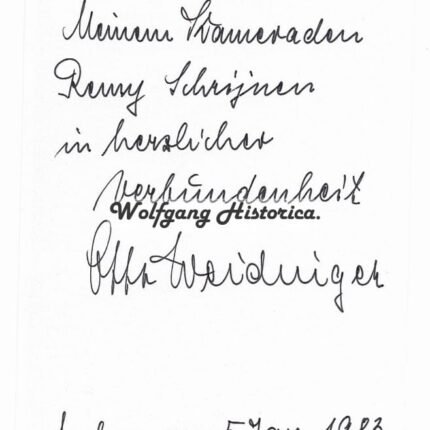 Meinem Kameraden
Remy Schrijnen
in herzlicher
Verbundenheit
Wolfgang Historica.
Otto Weidinger
5 Jan. 1983